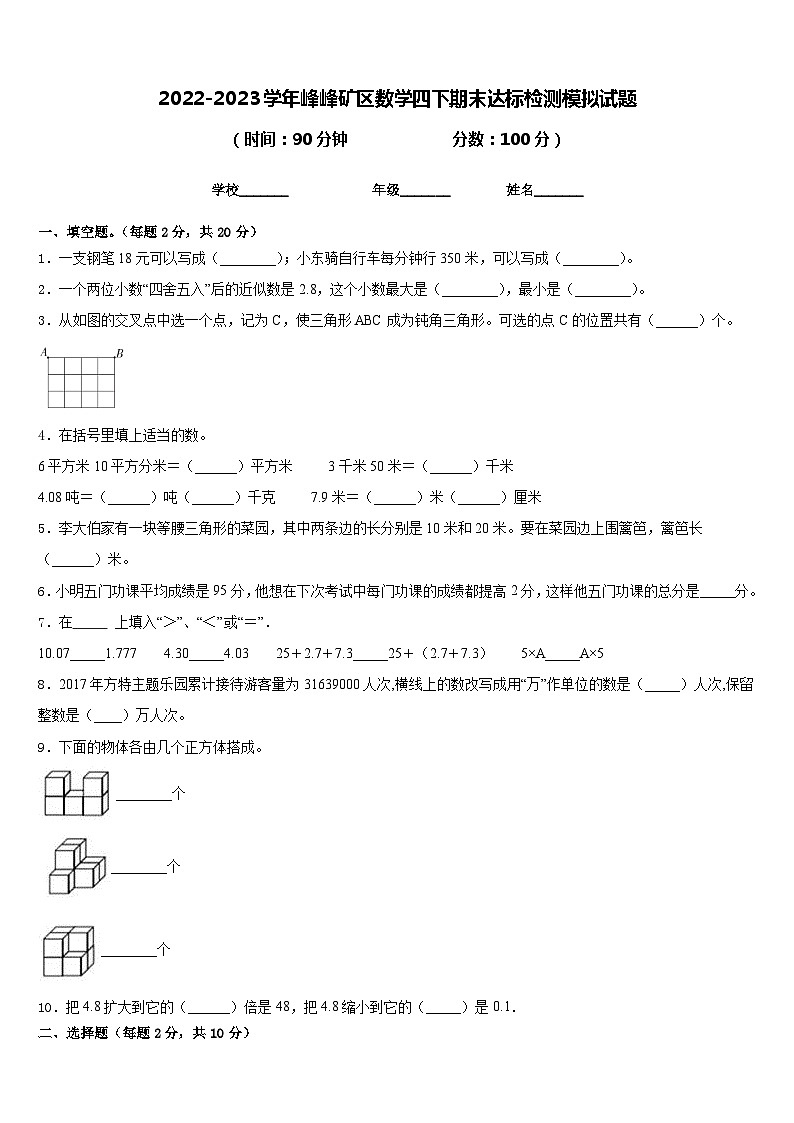 2022-2023学年峰峰矿区数学四下期末达标检测模拟试题
（时间：90分钟 分数：100分）
学校_______ 年级_______ 姓名_______
一、填空题。（每题2分，共20分）
1．一支钢笔18元可以写成（________）；小东骑自行车每分钟行350米，可以写成（________）。
2．一个两位小数“四舍五入”后的近似数是2.8，这个小数最大是（________），最小是（________）。
3．从如图的交叉点中选一个点，记为C，使三角形ABC成为钝角三角形。可选的点C的位置共有（______）个。
A B
4．在括号里填上适当的数。
6平方米10平方分米＝（______）平方米 3千米50米＝（______）千米
4.08吨＝（______）吨（______）千克 7.9米＝（______）米（______）厘米
5．李大伯家有一块等腰三角形的菜园，其中两条边的长分别是10米和20米。要在菜园边上围篱笆，篱笆长
（______）米。
6．小明五门功课平均成绩是95分，他想在下次考试中每门功课的成绩都提高2分，这样他五门功课的总分是_____分。
7．在_____ 上填入“＞”、“＜”或“＝”．
10.07_____1.777 4.30_____4.03 25＋2.7＋7.3_____25＋（2.7＋7.3） 5×A_____A×5
8．2017年方特主题乐园累计接待游客量为31639000人次,横线上的数改写成用“万”作单位的数是（_____）人次,保留
整数是（____）万人次。
9．下面的物体各由几个正方体搭成。
________个
________个
________个
10．把4.8扩大到它的（______）倍是48，把4.8缩小到它的（_____）是0.1．
二、选择题（每题2分，共10分）